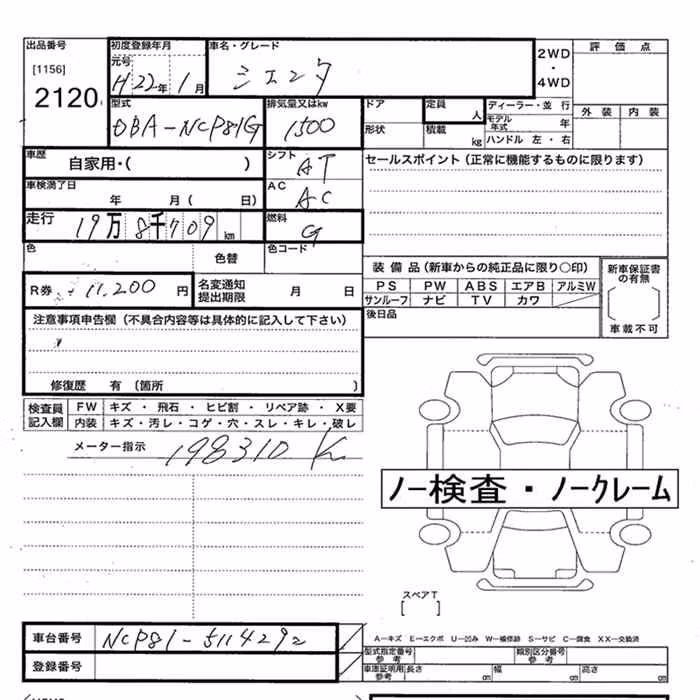 出品番号 初度登録年月 車名・グレード 2WD・4WD 評価点
[1156] 元号 H22年 1月 シエンタ
2120
型式 排気量又はkw ドア 定員 人 ディーラー・並 行 外装 内装
DBA-NCP81G 1500 形状 積載 kg モデル年式 年
ハンドル 左・右
車歴 自家用・( ) シフト AT セールスポイント(正常に機能するものに限ります)
車検満了日 年 月( 日) AC AC
走行 19万8千709km 燃料 G
色 色替 色コード
装備品(新車からの純正品に限り〇印) 新車保証書の有無
R券 11,200円 名変通知提出期限 月 日 PS PW ABS エアB アルミW
サンルーフ ナビ TV カワ
注意事項申告欄(不具合内容等は具体的に記入して下さい) 後日品 車載不可
修復歴 有(箇所 )
検査員記入欄 FW キズ・飛石・ヒビ割・リペア跡・X要
内装 キズ・汚レ・コゲ・穴・スレ・キレ・破レ
メーター指示 198310 K
ノー検査・ノークレーム
スペアT
[ ]
車台番号 NCP81-5114292 A-キズ E-エクボ U-凹み W-補修跡 S-サビ C-腐食 XX-交換済
登録番号 型式指定番号 参考 類別区分番号 参考
車庫証明用 参考 長さ cm 幅 cm 高さ cm